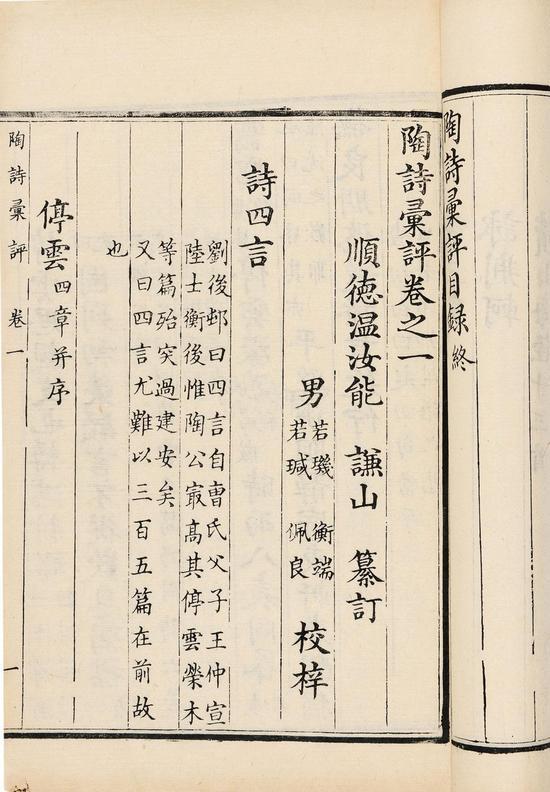 陶詩彙評目録終
陶詩彙評卷之一
順德温汝能 謙山 纂訂
男 若璣 衡端
若瑊 佩良 校梓
詩四言
劉後邨曰四言自曹氏父子王仲宣
陸士衡後惟陶公㝡高其停雲榮木
等篇殆突過建安矣
又曰四言尤難以三百五篇在前故
也
停雲四章并序
陶詩彙評 卷一 一